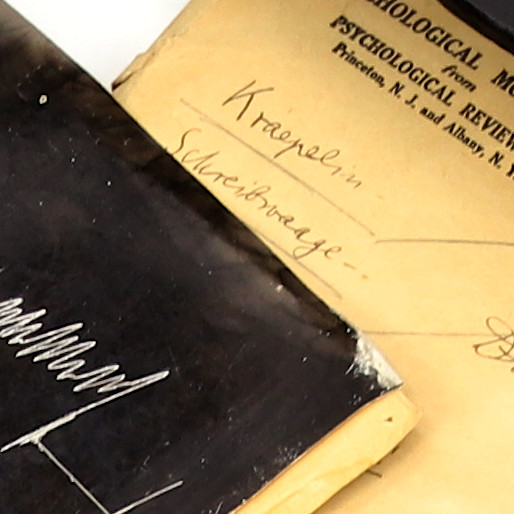 PSYCHOLOGICAL
from
PSYCHOLOGICAL REVIEW
Princeton, N. J. and Albany, N. Y.
Kraepelin
Schreibwaage